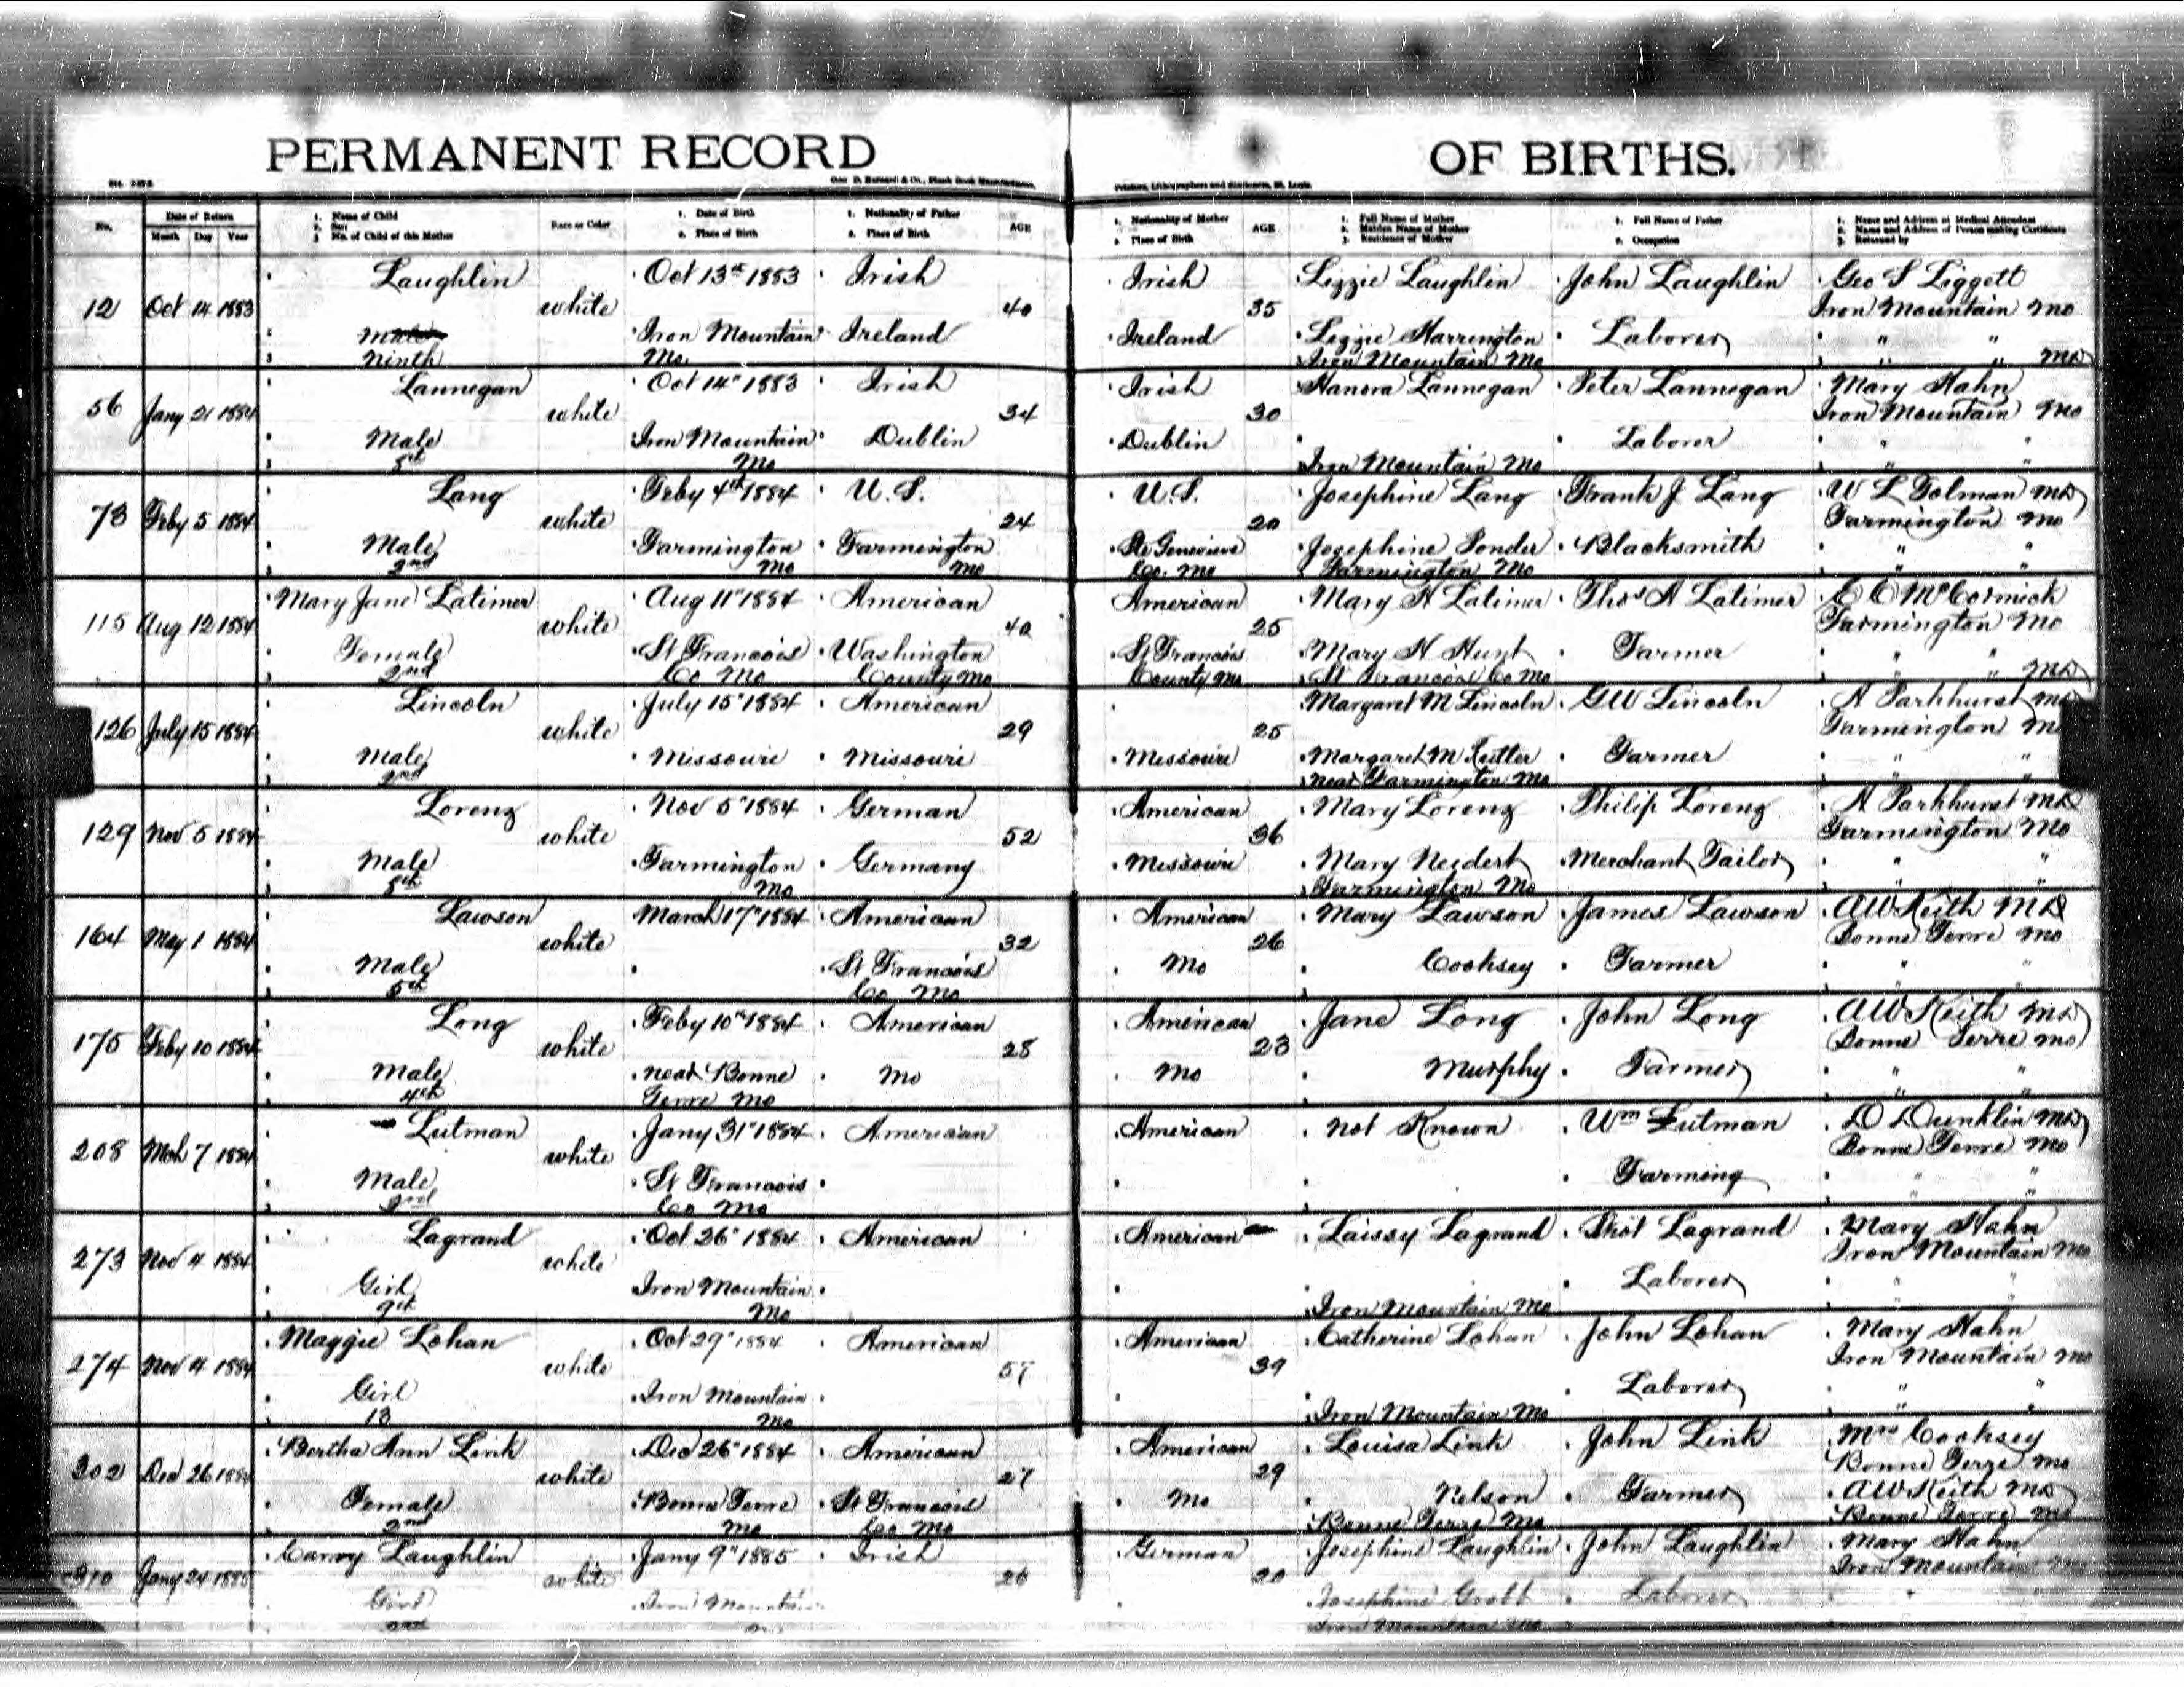 PERMANENT RECORD OF BIRTHS.
Geo. D. Barnard & Co., Blank Book Manufacturers,
Printers, Lithographers and Stationers, St. Louis.
No.
Date of Return
Month Day Year
1. Name of Child
2. Sex
3. No. of Child of this Mother
Race or Color
1. Date of Birth
2. Place of Birth
1. Nationality of Father
2. Place of Birth
AGE
1. Nationality of Mother
2. Place of Birth
AGE
1. Full Name of Mother
2. Maiden Name of Mother
3. Residence of Mother
1. Full Name of Father
2. Occupation
1. Name and Address of Medical Attendant
2. Name and Address of Person making Certificate
3. Returned by
Laughlin Oct 13th 1883 Irish Irish Lizzie Laughlin John Laughlin Geo S Liggett
12 Oct 14 1883 white 40 35 Iron Mountain Mo
Male Iron Mountain Ireland Ireland Lizzie Harrington Laborer " "
Ninth Mo. Iron Mountain Mo " " MD
Lannegan Oct 14" 1883 Irish Irish Hanora Lannegan Peter Lannegan Mary Hahn
56 Jany 21 1884 white 34 30 Iron Mountain Mo
Male Iron Mountain Dublin Dublin Laborer " "
5th Mo Iron Mountain Mo " "
Lang Feby 4th 1884 U.S. U.S. Josephine Lang Frank J Lang W L Tolman MD
73 Feby 5 1884 white 24 20 Farmington Mo
Male Farmington Farmington Ste Genevieve Josephine Ponder Blacksmith " "
2nd Mo Mo Co. Mo Farmington Mo " "
Mary Jane Latimer Aug 11" 1884 American American Mary H Latimer Thos A Latimer E E McCormick
115 Aug 12 1884 white 40 25 Farmington Mo
Female St Francois Washington St Francois Mary H Hunt Farmer " "
2nd Co Mo County Mo County Mo St Francois Co Mo " " MD
Lincoln July 15" 1884 American Margaret M Lincoln G W Lincoln A Parkhurst MD
126 July 15 1884 white 29 25 Farmington Mo
Male Missouri Missouri Missouri Margaret M Rutter Farmer " "
2nd near Farmington Mo
Lorenz Nov 5" 1884 German American Mary Lorenz Philip Lorenz A Parkhurst MD
129 Nov 5 1884 white 52 36 Farmington Mo
Male Farmington Germany Missouri Mary Neidert Merchant Tailor " "
8th Mo Farmington Mo " "
Lawson March 17" 1884 American American Mary Lawson James Lawson A W Keith MD
164 May 1 1884 white 32 26 Bonne Terre Mo
Male St Francois Mo Cooksey Farmer " "
5th Co Mo
Long Feby 10" 1884 American American Jane Long John Long A W Keith MD
175 Feby 10 1884 white 28 23 Bonne Terre Mo
Male near Bonne Mo Mo Murphy Farmer " "
4th Terre Mo " "
Lutman Jany 31" 1884 American American not Known Wm Lutman D Dunklin MD
208 Mch 7 1884 white Bonne Terre Mo
Male St Francois Farming " "
3rd Co Mo " "
Lagrand Oct 26" 1884 American American Laissy Lagrand Lagrand Mary Hahn
273 Nov 4 1884 white Iron Mountain Mo
Girl Iron Mountain Laborer " "
9th Mo Iron Mountain Mo " "
Maggie Lohan Oct 29" 1884 American American Catherine Lohan John Lohan Mary Hahn
274 Nov 4 1884 white 57 39 Iron Mountain Mo
Girl Iron Mountain Laborer " "
13 Mo Iron Mountain Mo " "
Bertha Ann Link Dec 26" 1884 American American Louisa Link John Link Mrs Cooksey
302 Dec 26 1884 white 27 29 Bonne Terre Mo
Female Bonne Terre St Francois Mo Nelson Farmer A W Keith MD
2nd Mo Co Mo Bonne Terre Mo Bonne Terre Mo
Laughlin Jany 9" 1885 Irish German Josephine Laughlin John Laughlin Mary Hahn
310 Jany 24 1885 white 26 20 Iron Mountain Mo
Girl Iron Mountain Josephine Grobt Laborer
2nd Iron Mountain Mo